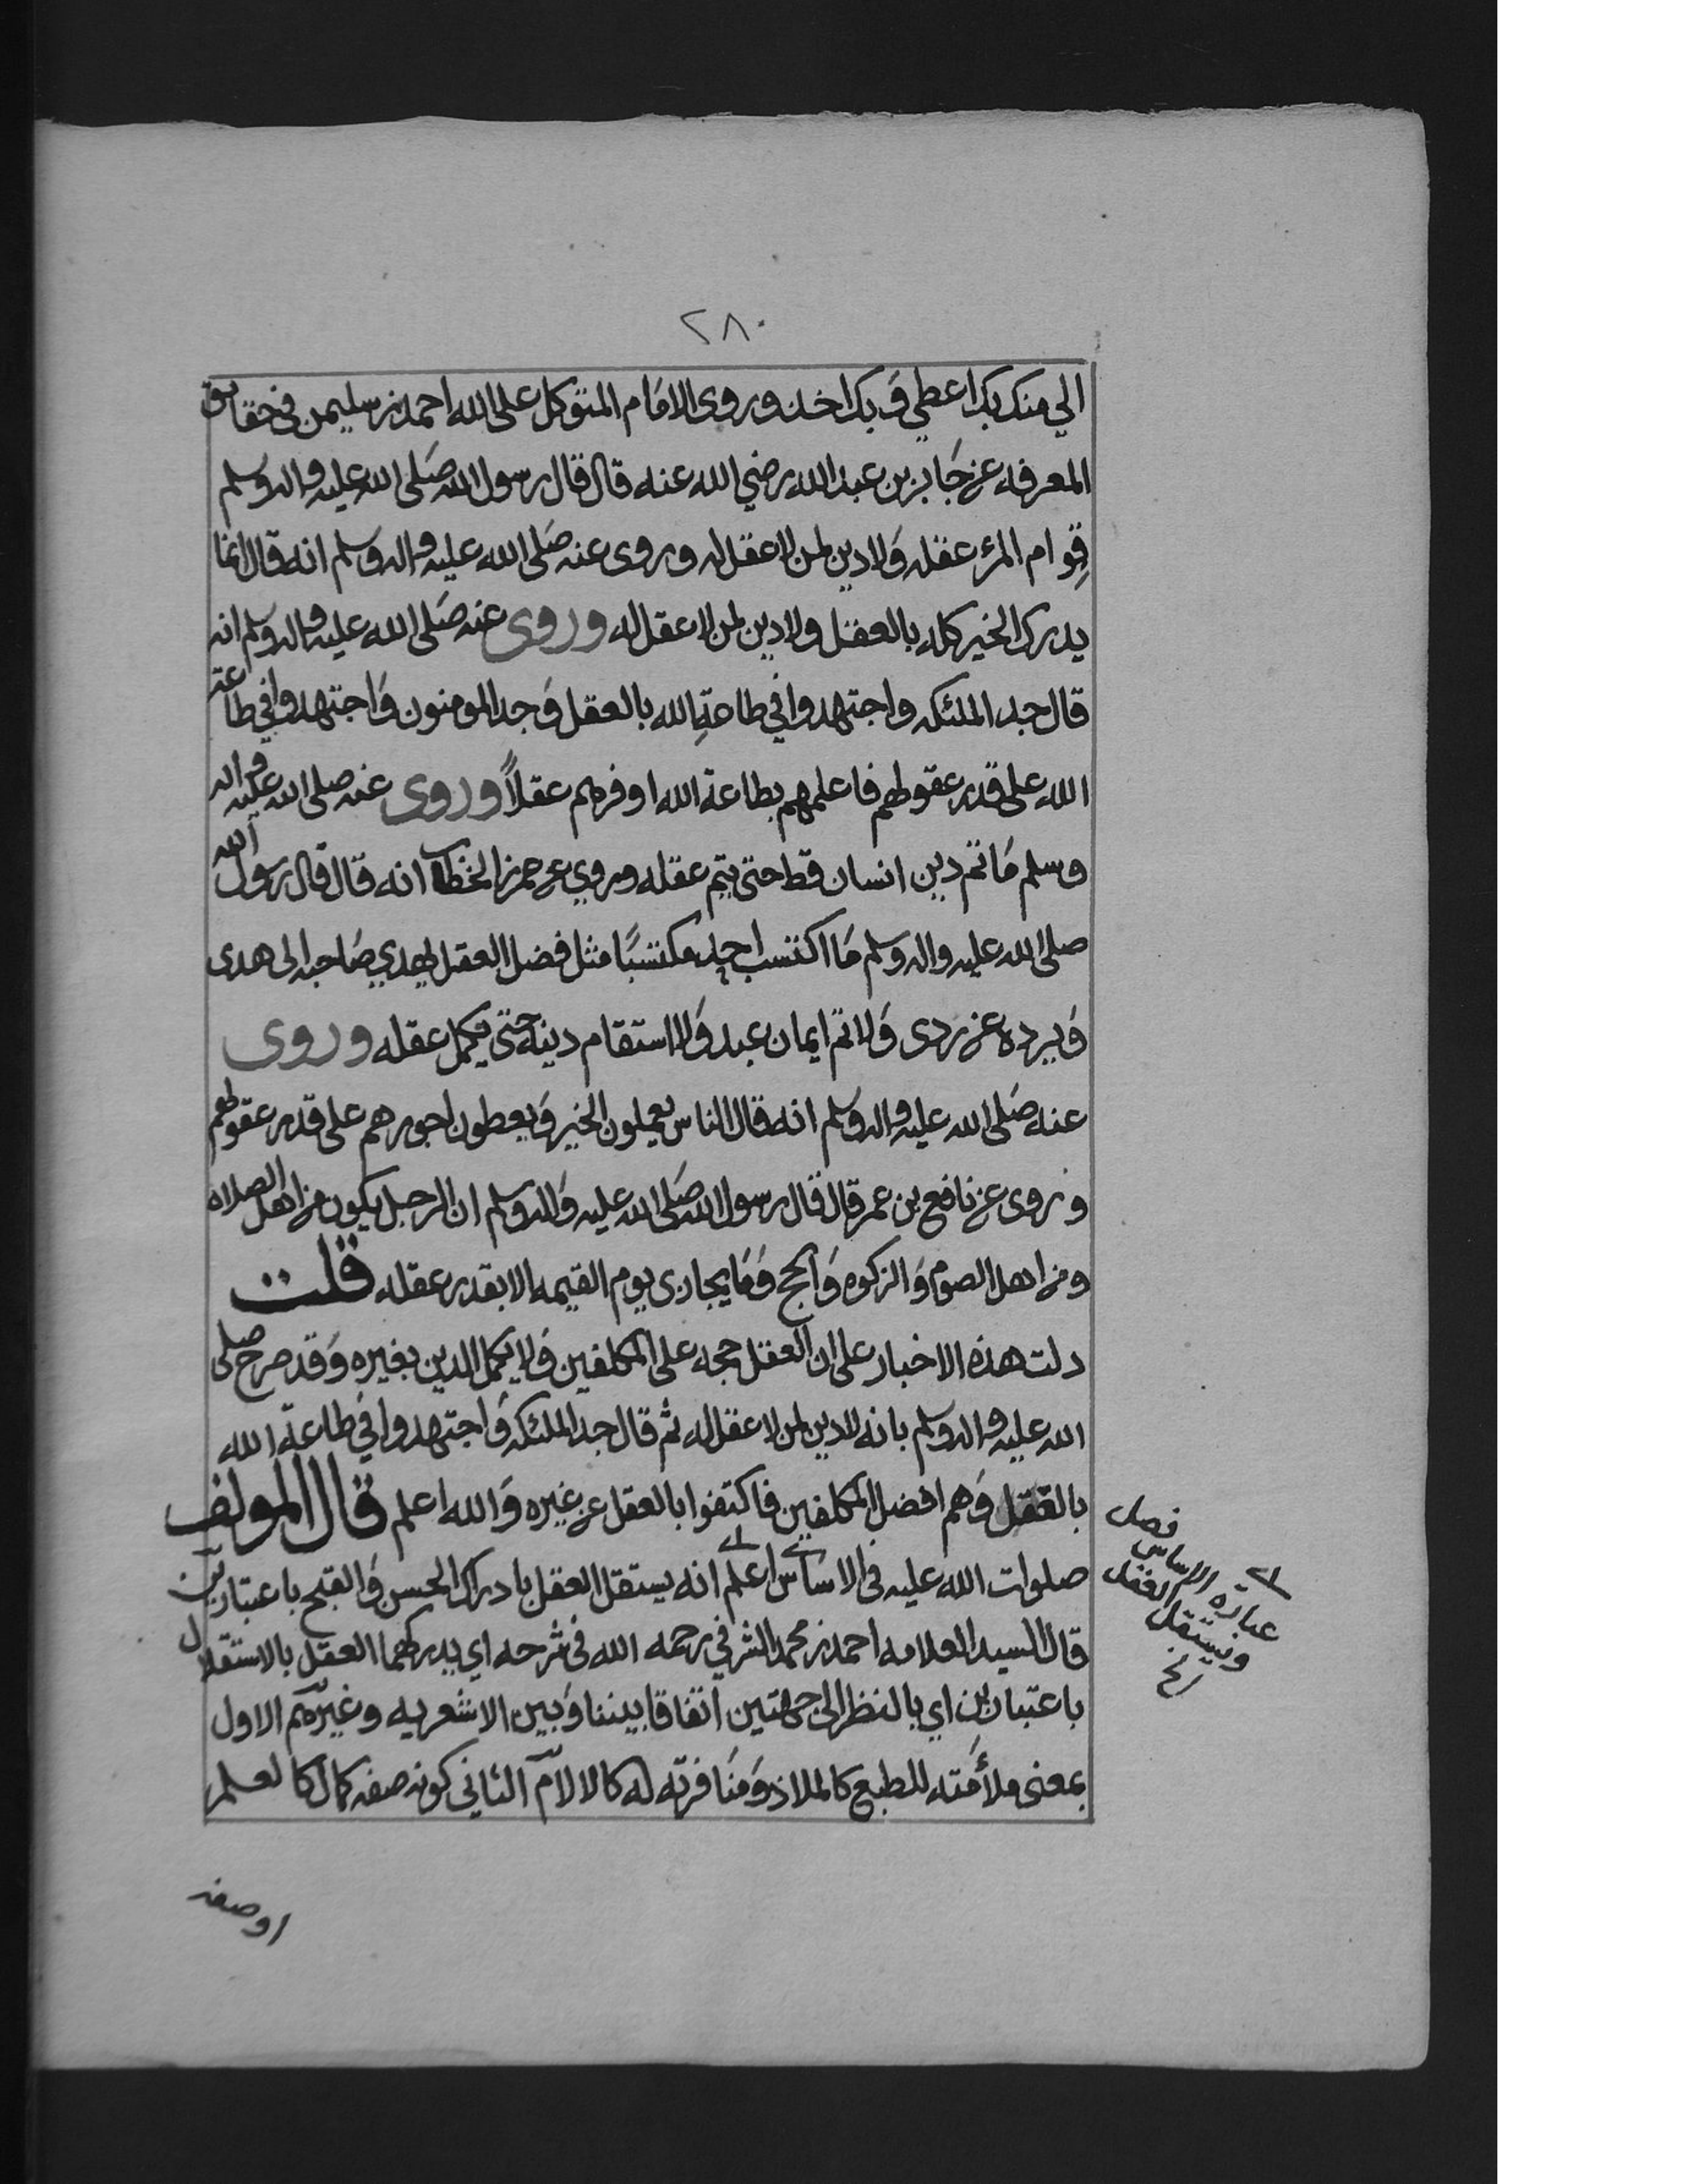 ٢٨٠
الي منك بك اعطي وَبك اخذ وروى الامَام المتوكل على الله احمد بن سليمن في حقايق
المعرفه عن جَابر بن عبد الله رضي الله عنه قال قال رسول الله صَلى الله عليه واله وسلم
قِوام المرء عقله وَلا دين لمن لا عقل له وروى عنه صَلى الله عليه واله وسلم انه قال انما
يدرك الخير كله بالعقل ولا دين لمن لا عقل له وروى عنه صَلى الله عليه واله وسلم انه
قال جد الملئكه واجتهدوا في طاعةِ الله بالعقل وَجد المومنون وَاجتهدوا في طاعة
الله على قدر عقولهم فاعلمهم بطاعة الله اوفرهم عقلاً وروى عنه صلى الله عليه واله
وسلم مَا تم دين انسان قط حتى يتم عقله وروي عن عمر بن الخطاب انه قال قال رسول الله
صلى الله عليه واله وسلم مَا اكتسب احد مكتسبًا مثل فضل العقل يهدي صَاحبه الى هدى
وَيرده عن ردى وَلا تم ايمان عبد وَلا استقام دينه حتى يكمل عقله وروى
عنه صَلى الله عليه واله وسلم انه قال الناس يعملون الخير وَيعطون اجورهم على قدر عقولهم
وروى عن نافع بن عمر قال قال رسول الله صَلى الله عليه وَاله وسلم ان الرجل يكون من اهل الصلاه
ومن اهل الصوم وَالزكوه وَالحج وَمَا يجازى يوم القيمه الا بقدر عقله قلت
دلت هذه الاخبار على ان العقل حجه على المكلفين وَلا يكمل الدين بغيره وَقد صرح صلى
الله عليه واله وسلم بانه لا دين لمن لا عقل له ثم قال جد الملئكه وَاجتهدوا في طاعة الله
بالعقل وَهم افضل المكلفين فاكتفوا بالعقل عن غيره وَالله اعلم قال المولف
صلوات الله عليه في الاساس اعلم انه يستقل العقل بادراك الحسن وَالقبح باعتبارين
قال السيد العلامه احمد بن محمد الشرفي رحمه الله في شرحه اي يدركهما العقل بالاستقلال
باعتبارين اي بالنظر الى جهتين اتفاقا بيننا وَبين الاشعريه وغيرهم الاول
بمعنى ملأمته للطبع كالملاذ وَمنَافرته له كالالام الثاني كونه صفه كمال كالعلم
اوصفه
فصل
عبارة الاساس
ويستقل العقل
الخ